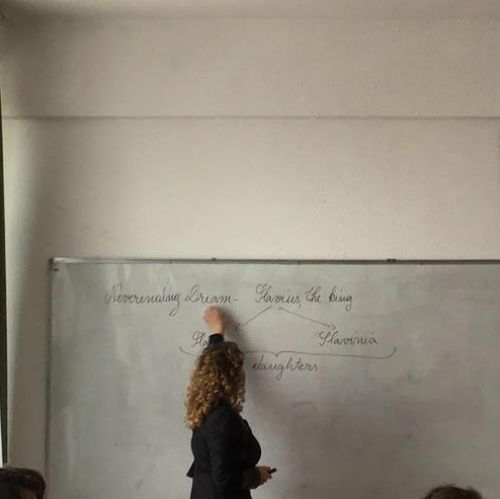 Neverending Dream - Slavius, the king
Slavinia
daughters